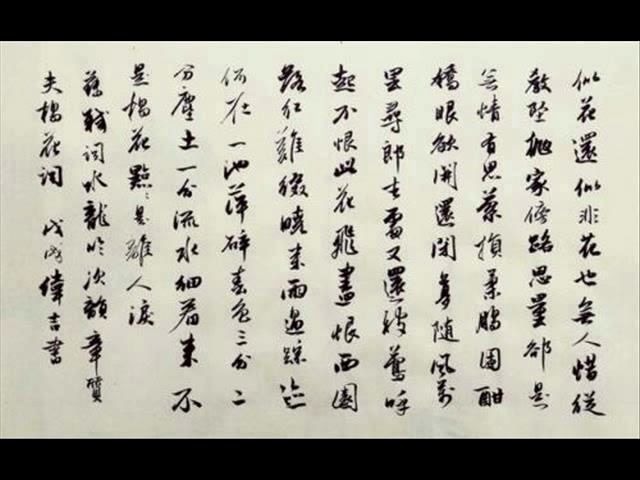 似花還似非花也無人惜從
教墜拋家傍路思量卻是
無情有思縈損柔腸困酣
嬌眼欲開還閉夢隨風萬
里尋郎去處又還被鶯呼
起不恨此花飛盡恨西園
落紅難綴曉來雨過踪迹
何在一池萍碎春色三分二
分塵土一分流水細看來不
是楊花點點是離人淚
蘇軾詞水龍吟次韻章質
夫楊花詞 戊戌偉吉書